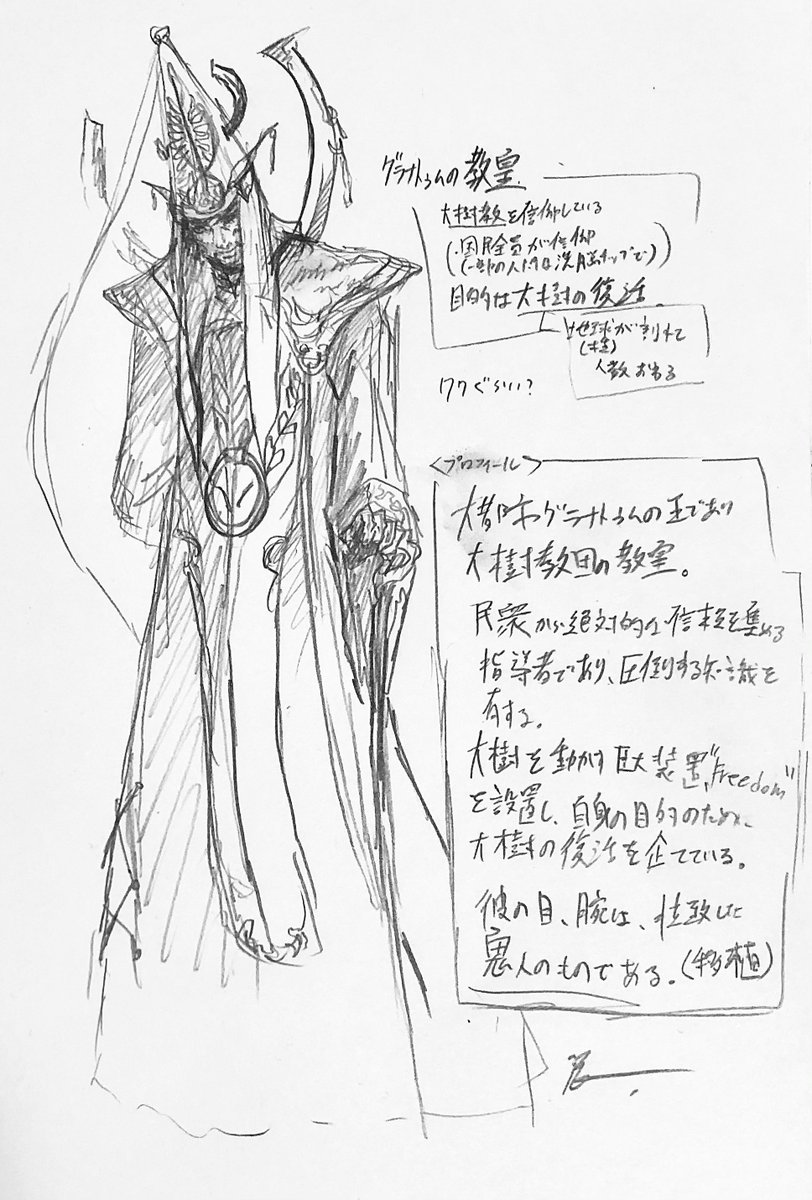 グラナトゥムの教皇
大樹教を信仰している
(・国民全員が信仰
(一部の人は洗脳チップで))
目的は大樹の復活。
地球が割れて
人数おわる
ワクぐらい?
<プロフィール>
大替阝グラナトゥムの王であり
大樹教団の教皇。
民衆から絶対的な信頼を集める
指導者であり、圧倒する知識を
有する。
大樹を動かす巨大装置、"Freedom"
を設置し、自身の目的のため、
大樹の復活を企てている。
彼の目、腕は、拉致した
悪人のものである。(移植)